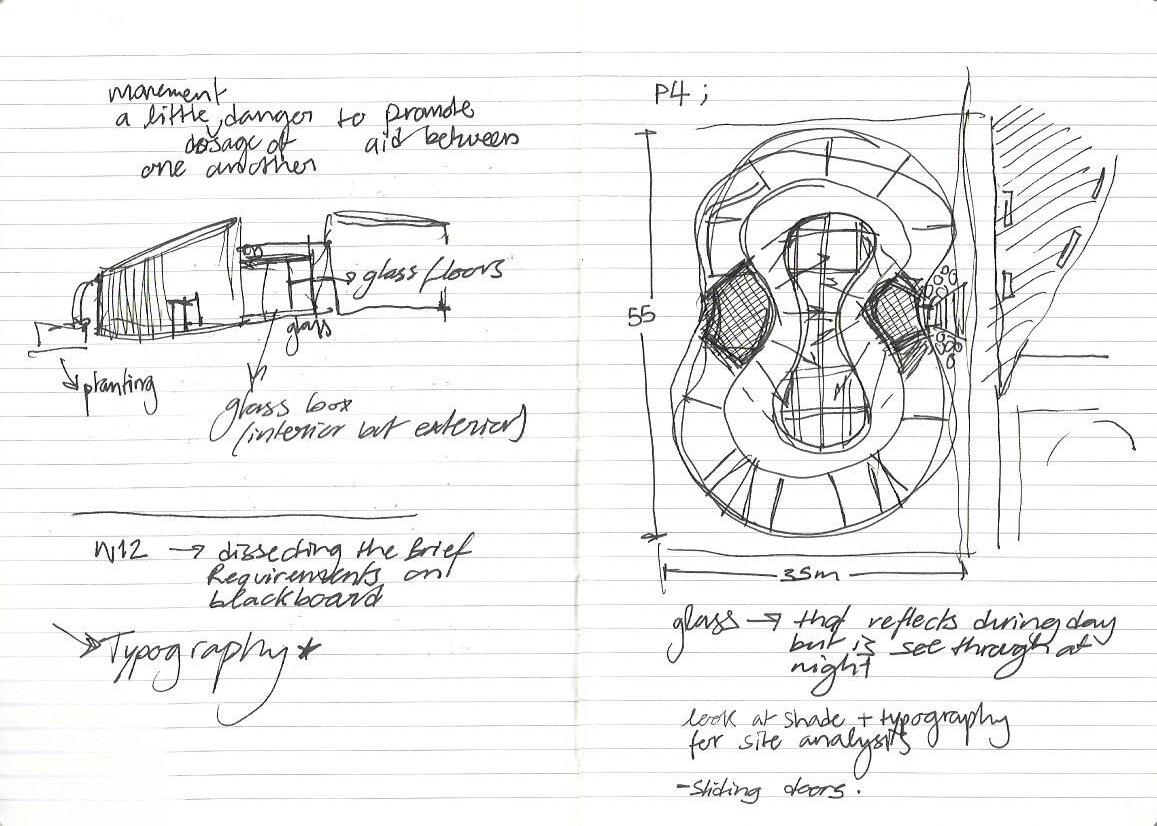 movement
a little danger to promote
dosage of aid between
one another
glass floors
glass
planting
glass box
(interior but exterior)
W12 → dissecting the Brief
Requirements on
blackboard
Typography *
P4 ;
55
35m
glass → that reflects during day
but is see through at
night
look at shade + typography
for site analysis
- Sliding doors .